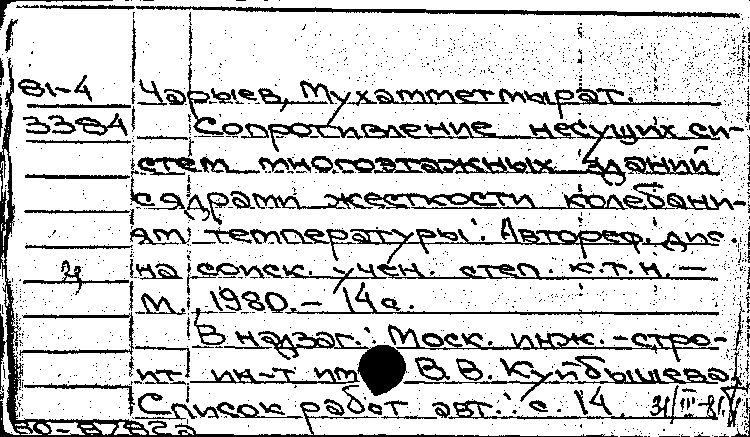 81-4 Чарыев, Мухамметмырат.
3384 Сопротивление несущих си-
стем многоэтажных зданий
с ядрами жесткости колебани-
ям температуры: Автореф. дис.
на соиск. учен. степ. к.т.н. —
М., 1980. - 14с.
В надзаг.: Моск. инж.-стро-
ит. ин-т им. В.В. Куйбышева.
Список работ авт.: с. 14. 31/III-81
80-8782а